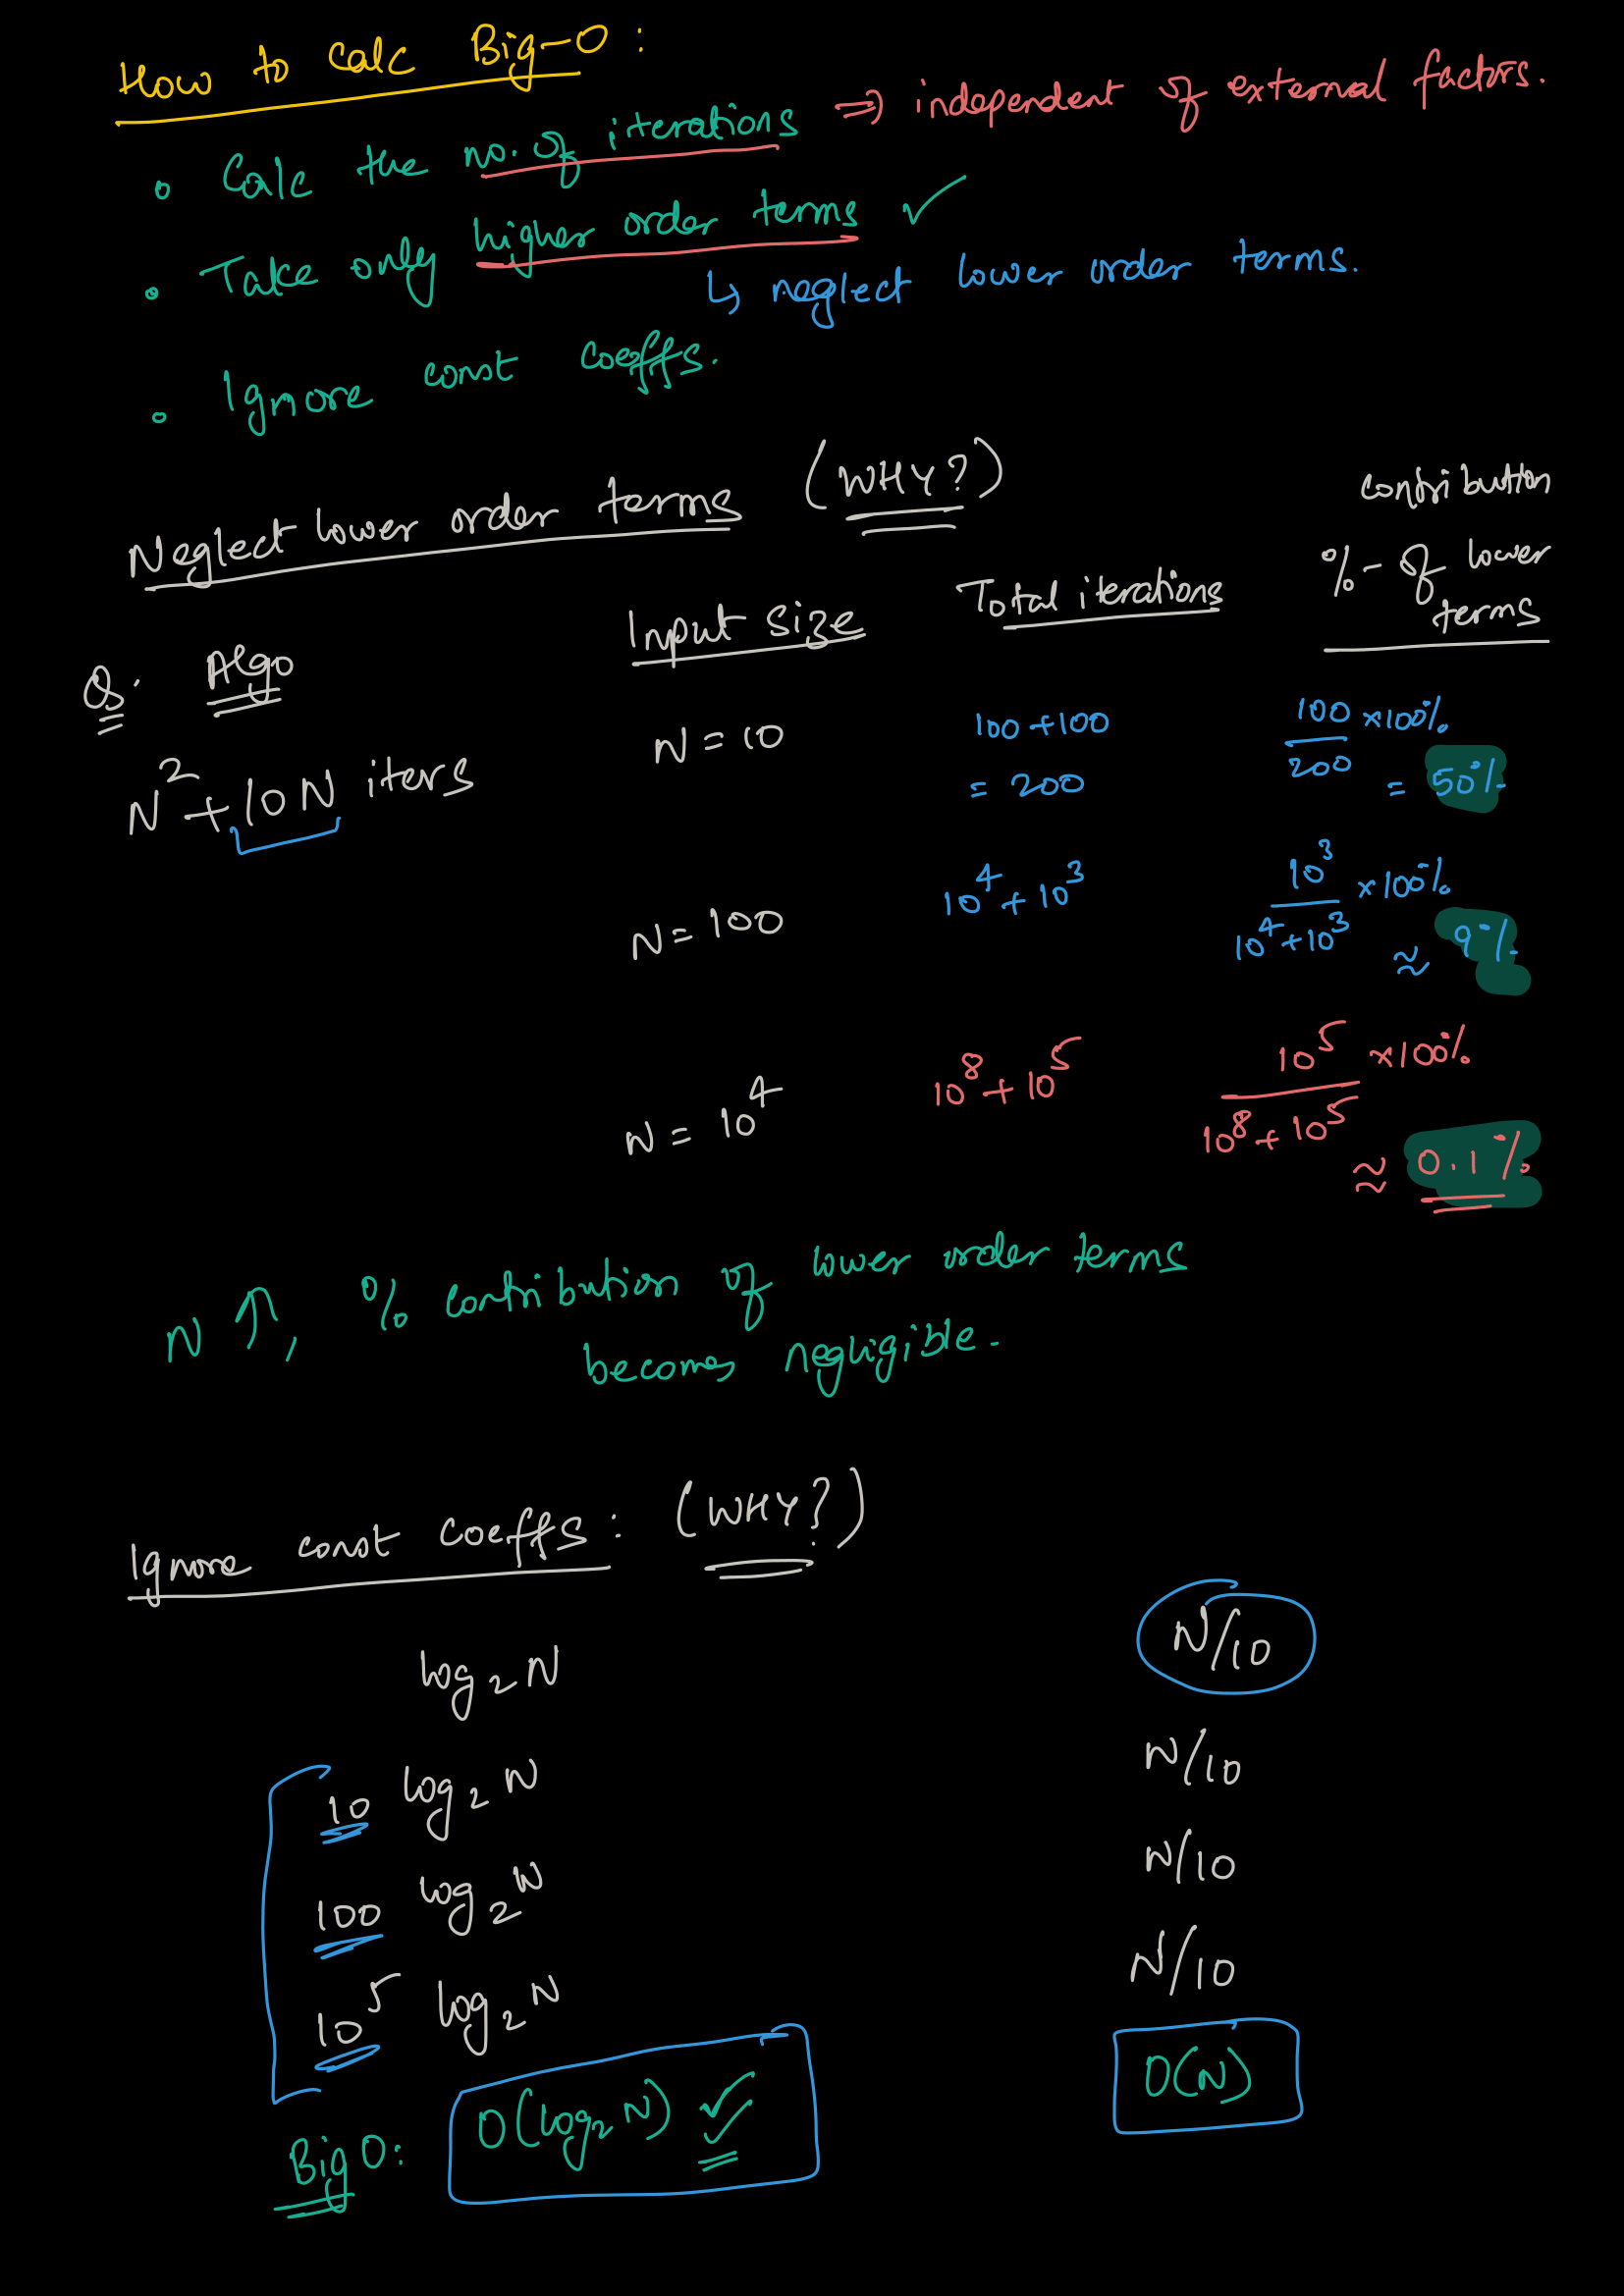 How to calc Big-O:
• Calc the no. of iterations ⇒ independent of external factors.
• Take only higher order terms ✓
↳ neglect lower order terms.
• Ignore const coeffs.
Neglect lower order terms (WHY?)
Q. Algo Input size Total iterations contribution %- of lower terms
N² + 10N iters N = 10 100 + 100 = 200 100/200 × 100% = 50%
N = 100 10⁴ + 10³ 10³/(10⁴ + 10³) × 100% ≈ 9%
N = 10⁴ 10⁸ + 10⁵ 10⁵/(10⁸ + 10⁵) × 100% ≈ 0.1%
N ↑, % contribution of lower order terms
becomes negligible.
Ignore const coeffs: (WHY?)
log₂N N/10
10 log₂N N/10
100 log₂N N/10
10⁵ log₂N N/10
Big O: O(log₂N) ✓ O(N)